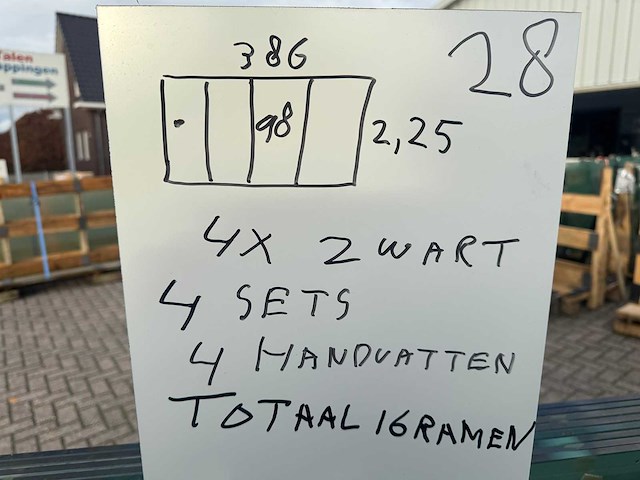 28
386
98
2,25
4X ZWART
4 SETS
4 HANDVATTEN
TOTAAL 16 RAMEN